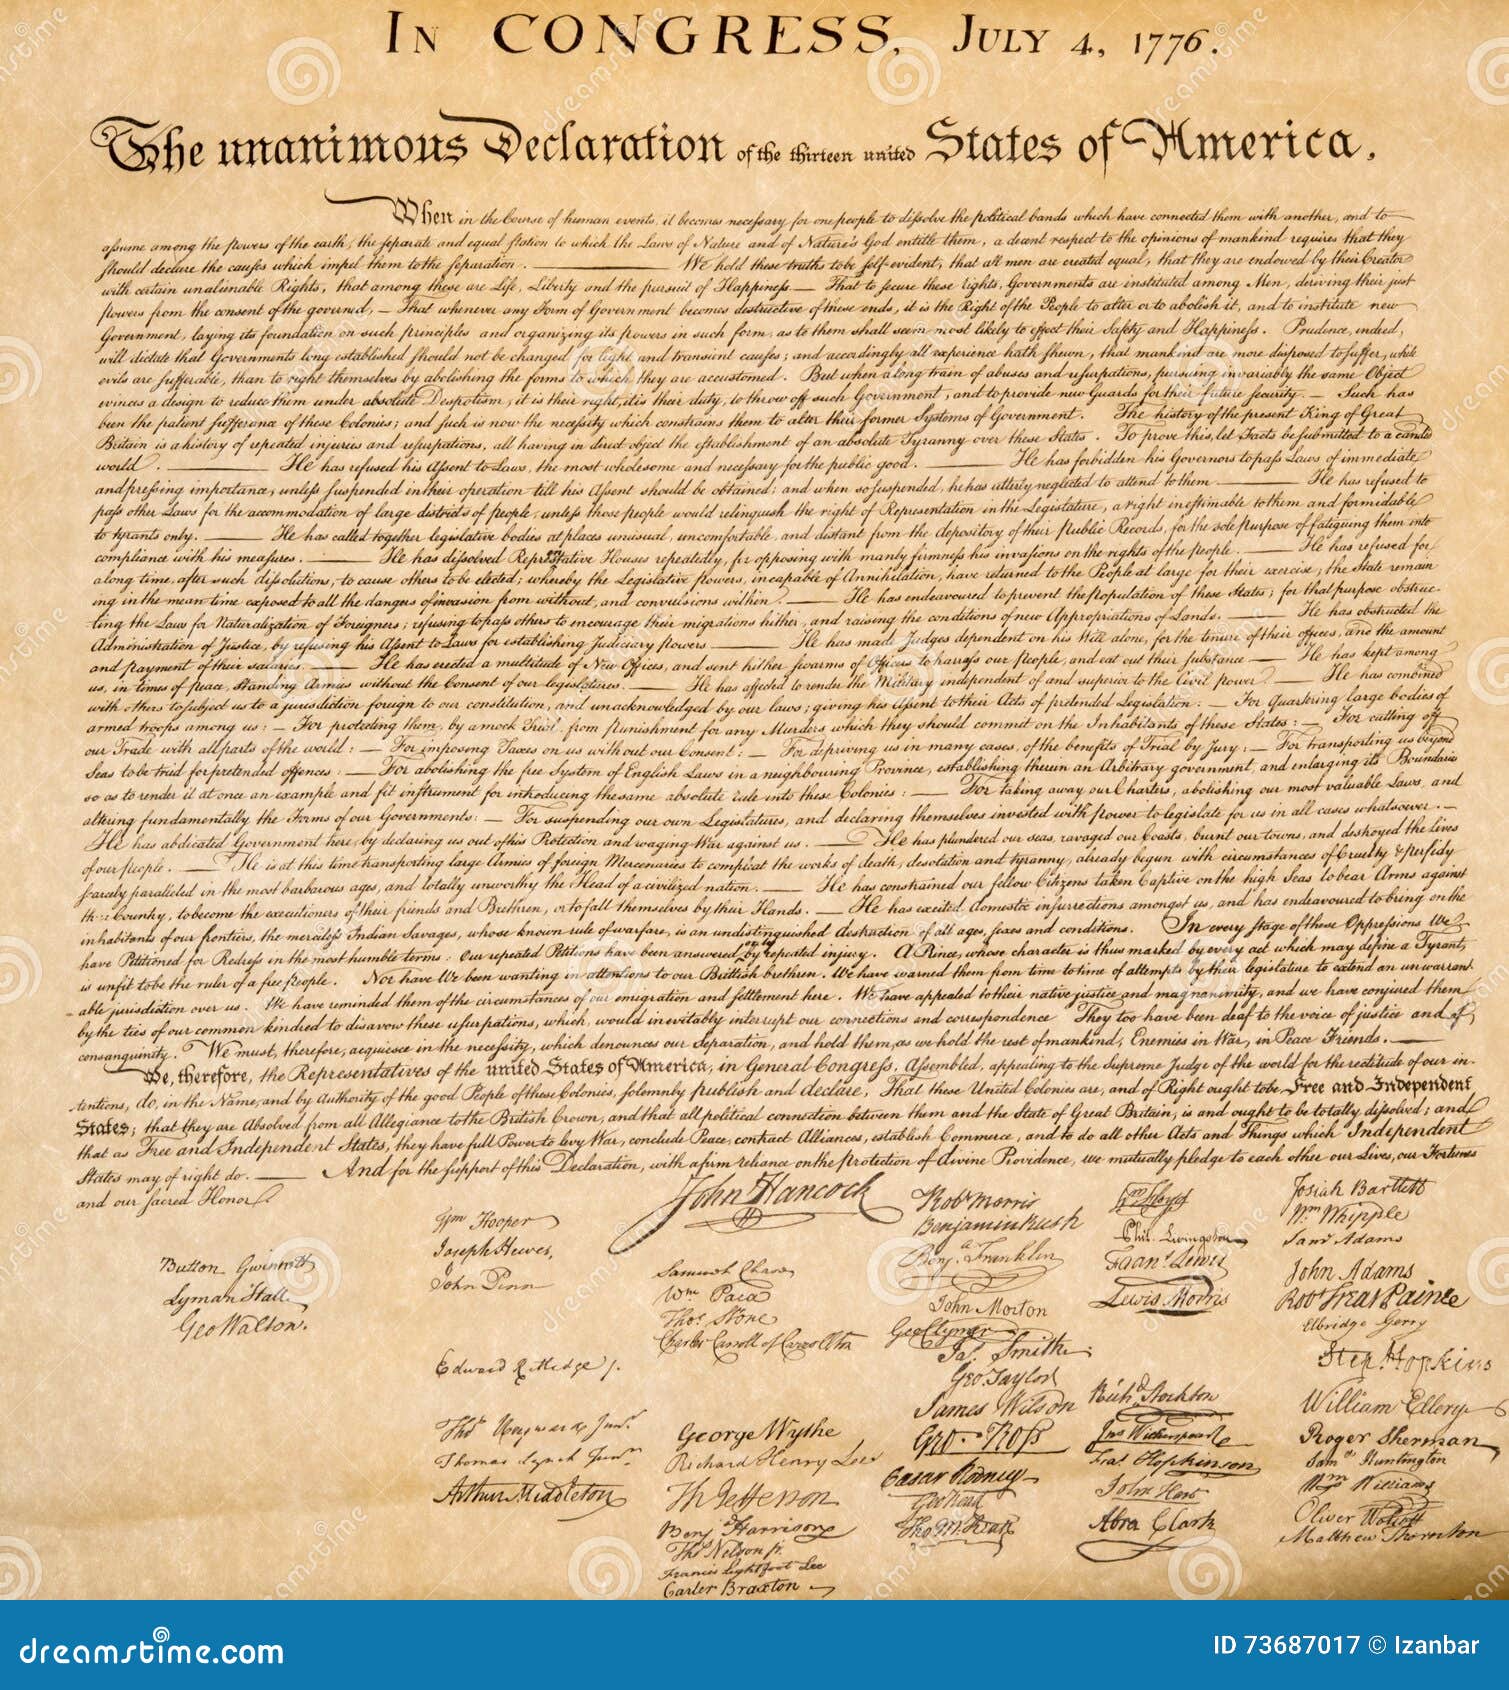 In CONGRESS, July 4, 1776.
The unanimous Declaration of the thirteen united States of America,
When in the Course of human events, it becomes necessary for one people to dissolve the political bands which have connected them with another, and to
assume among the powers of the earth, the separate and equal station to which the Laws of Nature and of Nature's God entitle them, a decent respect to the opinions of mankind requires that they
should declare the causes which impel them to the separation. We hold these truths to be self-evident, that all men are created equal, that they are endowed by their Creator
with certain unalienable Rights, that among these are Life, Liberty and the pursuit of Happiness.— That to secure these rights, Governments are instituted among Men, deriving their just
powers from the consent of the governed,— That whenever any Form of Government becomes destructive of these ends, it is the Right of the People to alter or to abolish it, and to institute new
Government, laying its foundation on such principles and organizing its powers in such form, as to them shall seem most likely to effect their Safety and Happiness. Prudence, indeed,
will dictate that Governments long established should not be changed for light and transient causes; and accordingly all experience hath shewn, that mankind are more disposed to suffer, while
evils are sufferable, than to right themselves by abolishing the forms to which they are accustomed. But when a long train of abuses and usurpations, pursuing invariably the same Object
evinces a design to reduce them under absolute Despotism, it is their right, it is their duty, to throw off such Government, and to provide new Guards for their future security.— Such has
been the patient sufferance of these Colonies; and such is now the necessity which constrains them to alter their former Systems of Government. The history of the present King of Great
Britain is a history of repeated injuries and usurpations, all having in direct object the establishment of an absolute Tyranny over these States. To prove this, let Facts be submitted to a candid
world. He has refused his Assent to Laws, the most wholesome and necessary for the public good. He has forbidden his Governors to pass Laws of immediate
and pressing importance, unless suspended in their operation till his Assent should be obtained; and when so suspended, he has utterly neglected to attend to them. He has refused to
pass other Laws for the accommodation of large districts of people, unless those people would relinquish the right of Representation in the Legislature, a right inestimable to them and formidable
to tyrants only. He has called together legislative bodies at places unusual, uncomfortable, and distant from the depository of their Public Records, for the sole purpose of fatiguing them into
compliance with his measures. He has dissolved Representative Houses repeatedly, for opposing with manly firmness his invasions on the rights of the people. He has refused for
a long time, after such dissolutions, to cause others to be elected; whereby the Legislative powers, incapable of Annihilation, have returned to the People at large for their exercise; the State remain
ing in the mean time exposed to all the dangers of invasion from without, and convulsions within. He has endeavoured to prevent the population of these States; for that purpose obstruc-
ting the Laws for Naturalization of Foreigners; refusing to pass others to encourage their migrations hither, and raising the conditions of new Appropriations of Lands. He has obstructed the
Administration of Justice, by refusing his Assent to Laws for establishing Judiciary powers He has made Judges dependent on his Will alone, for the tenure of their offices, and the amount
and payment of their salaries. He has erected a multitude of New Offices, and sent hither swarms of Officers to harrass our people, and eat out their substance He has kept among
us, in times of peace, Standing Armies without the Consent of our legislatures. He has affected to render the Military independent of and superior to the Civil power. He has combined
with others to subject us to a jurisdiction foreign to our constitution, and unacknowledged by our laws; giving his Assent to their Acts of pretended Legislation: — For Quartering large bodies of
armed troops among us: — For protecting them, by a mock Trial, from punishment for any Murders which they should commit on the Inhabitants of these States: — For cutting off
our Trade with all parts of the world: — For imposing Taxes on us without our Consent: — For depriving us in many cases, of the benefits of Trial by Jury: — For transporting us beyond
Seas to be tried for pretended offences: — For abolishing the free System of English Laws in a neighbouring Province, establishing therein an Arbitrary government, and enlarging its Boundaries
so as to render it at once an example and fit instrument for introducing the same absolute rule into these Colonies: — For taking away our Charters, abolishing our most valuable Laws, and
altering fundamentally the Forms of our Governments: — For suspending our own Legislatures, and declaring themselves invested with power to legislate for us in all cases whatsoever.—
He has abdicated Government here, by declaring us out of his Protection and waging War against us. — He has plundered our seas, ravaged our Coasts, burnt our towns, and destroyed the lives
of our people. — He is at this time transporting large Armies of foreign Mercenaries to compleat the works of death, desolation and tyranny, already begun with circumstances of Cruelty & perfidy
scarcely paralleled in the most barbarous ages, and totally unworthy the Head of a civilized nation. — He has constrained our fellow Citizens taken Captive on the high Seas to bear Arms against
their Country, to become the executioners of their friends and Brethren, or to fall themselves by their Hands. — He has excited domestic insurrections amongst us, and has endeavoured to bring on the
inhabitants of our frontiers, the merciless Indian Savages, whose known rule of warfare, is an undistinguished destruction of all ages, sexes and conditions. In every stage of these Oppressions We
have Petitioned for Redress in the most humble terms: Our repeated Petitions have been answered only by repeated injury. A Prince, whose character is thus marked by every act which may define a Tyrant,
is unfit to be the ruler of a free people. Nor have We been wanting in attentions to our Brittish brethren. We have warned them from time to time of attempts by their legislature to extend an unwarrant-
able jurisdiction over us. We have reminded them of the circumstances of our emigration and settlement here. We have appealed to their native justice and magnanimity, and we have conjured them
by the ties of our common kindred to disavow these usurpations, which, would inevitably interrupt our connections and correspondence They too have been deaf to the voice of justice and of
consanguinity. We must, therefore, acquiesce in the necessity, which denounces our Separation, and hold them, as we hold the rest of mankind, Enemies in War, in Peace Friends.—
We, therefore, the Representatives of the united States of America, in General Congress, Assembled, appealing to the Supreme Judge of the world for the rectitude of our in-
tentions, do, in the Name, and by Authority of the good People of these Colonies, solemnly publish and declare, That these United Colonies are, and of Right ought to be Free and Independent
States; that they are Absolved from all Allegiance to the British Crown, and that all political connection between them and the State of Great Britain, is and ought to be totally dissolved; and
that as Free and Independent States, they have full Power to levy War, conclude Peace, contract Alliances, establish Commerce, and to do all other Acts and Things which Independent
States may of right do. — And for the support of this Declaration, with a firm reliance on the protection of divine Providence, we mutually pledge to each other our Lives, our Fortunes
and our sacred Honor.
Button Gwinnett
Lyman Hall
Geo Walton.
Wm Hooper
Joseph Hewes,
John Penn
Edward Rutledge /.
Thos Heyward Junr.
Thomas Lynch Junr.
Arthur Middleton
John Hancock
Samuel Chase
Wm Paca
Thos Stone
Charles Carroll of Carrollton
George Wythe
Richard Henry Lee
Th Jefferson
Benj Harrison
Thos Nelson jr.
Francis Lightfoot Lee
Carter Braxton
Robt Morris
Benjamin Rush
Benj. Franklin
John Morton
Geo Clymer
Jas. Smith
Geo. Taylor
James Wilson
Geo. Ross
Caesar Rodney
Geo Read
Tho M:Kean
Wm Floyd
Phil. Livingston
Frans. Lewis
Lewis Morris
Richd. Stockton
Jno Witherspoon
Fras. Hopkinson
John Hart
Abra Clark
Josiah Bartlett
Wm Whipple
Saml Adams
John Adams
Robt Treat Paine
Elbridge Gerry
Step. Hopkins
William Ellery
Roger Sherman
Saml Huntington
Wm Williams
Oliver Wolcott
Matthew Thornton
dreamstime.com
ID 73687017 © Izanbar